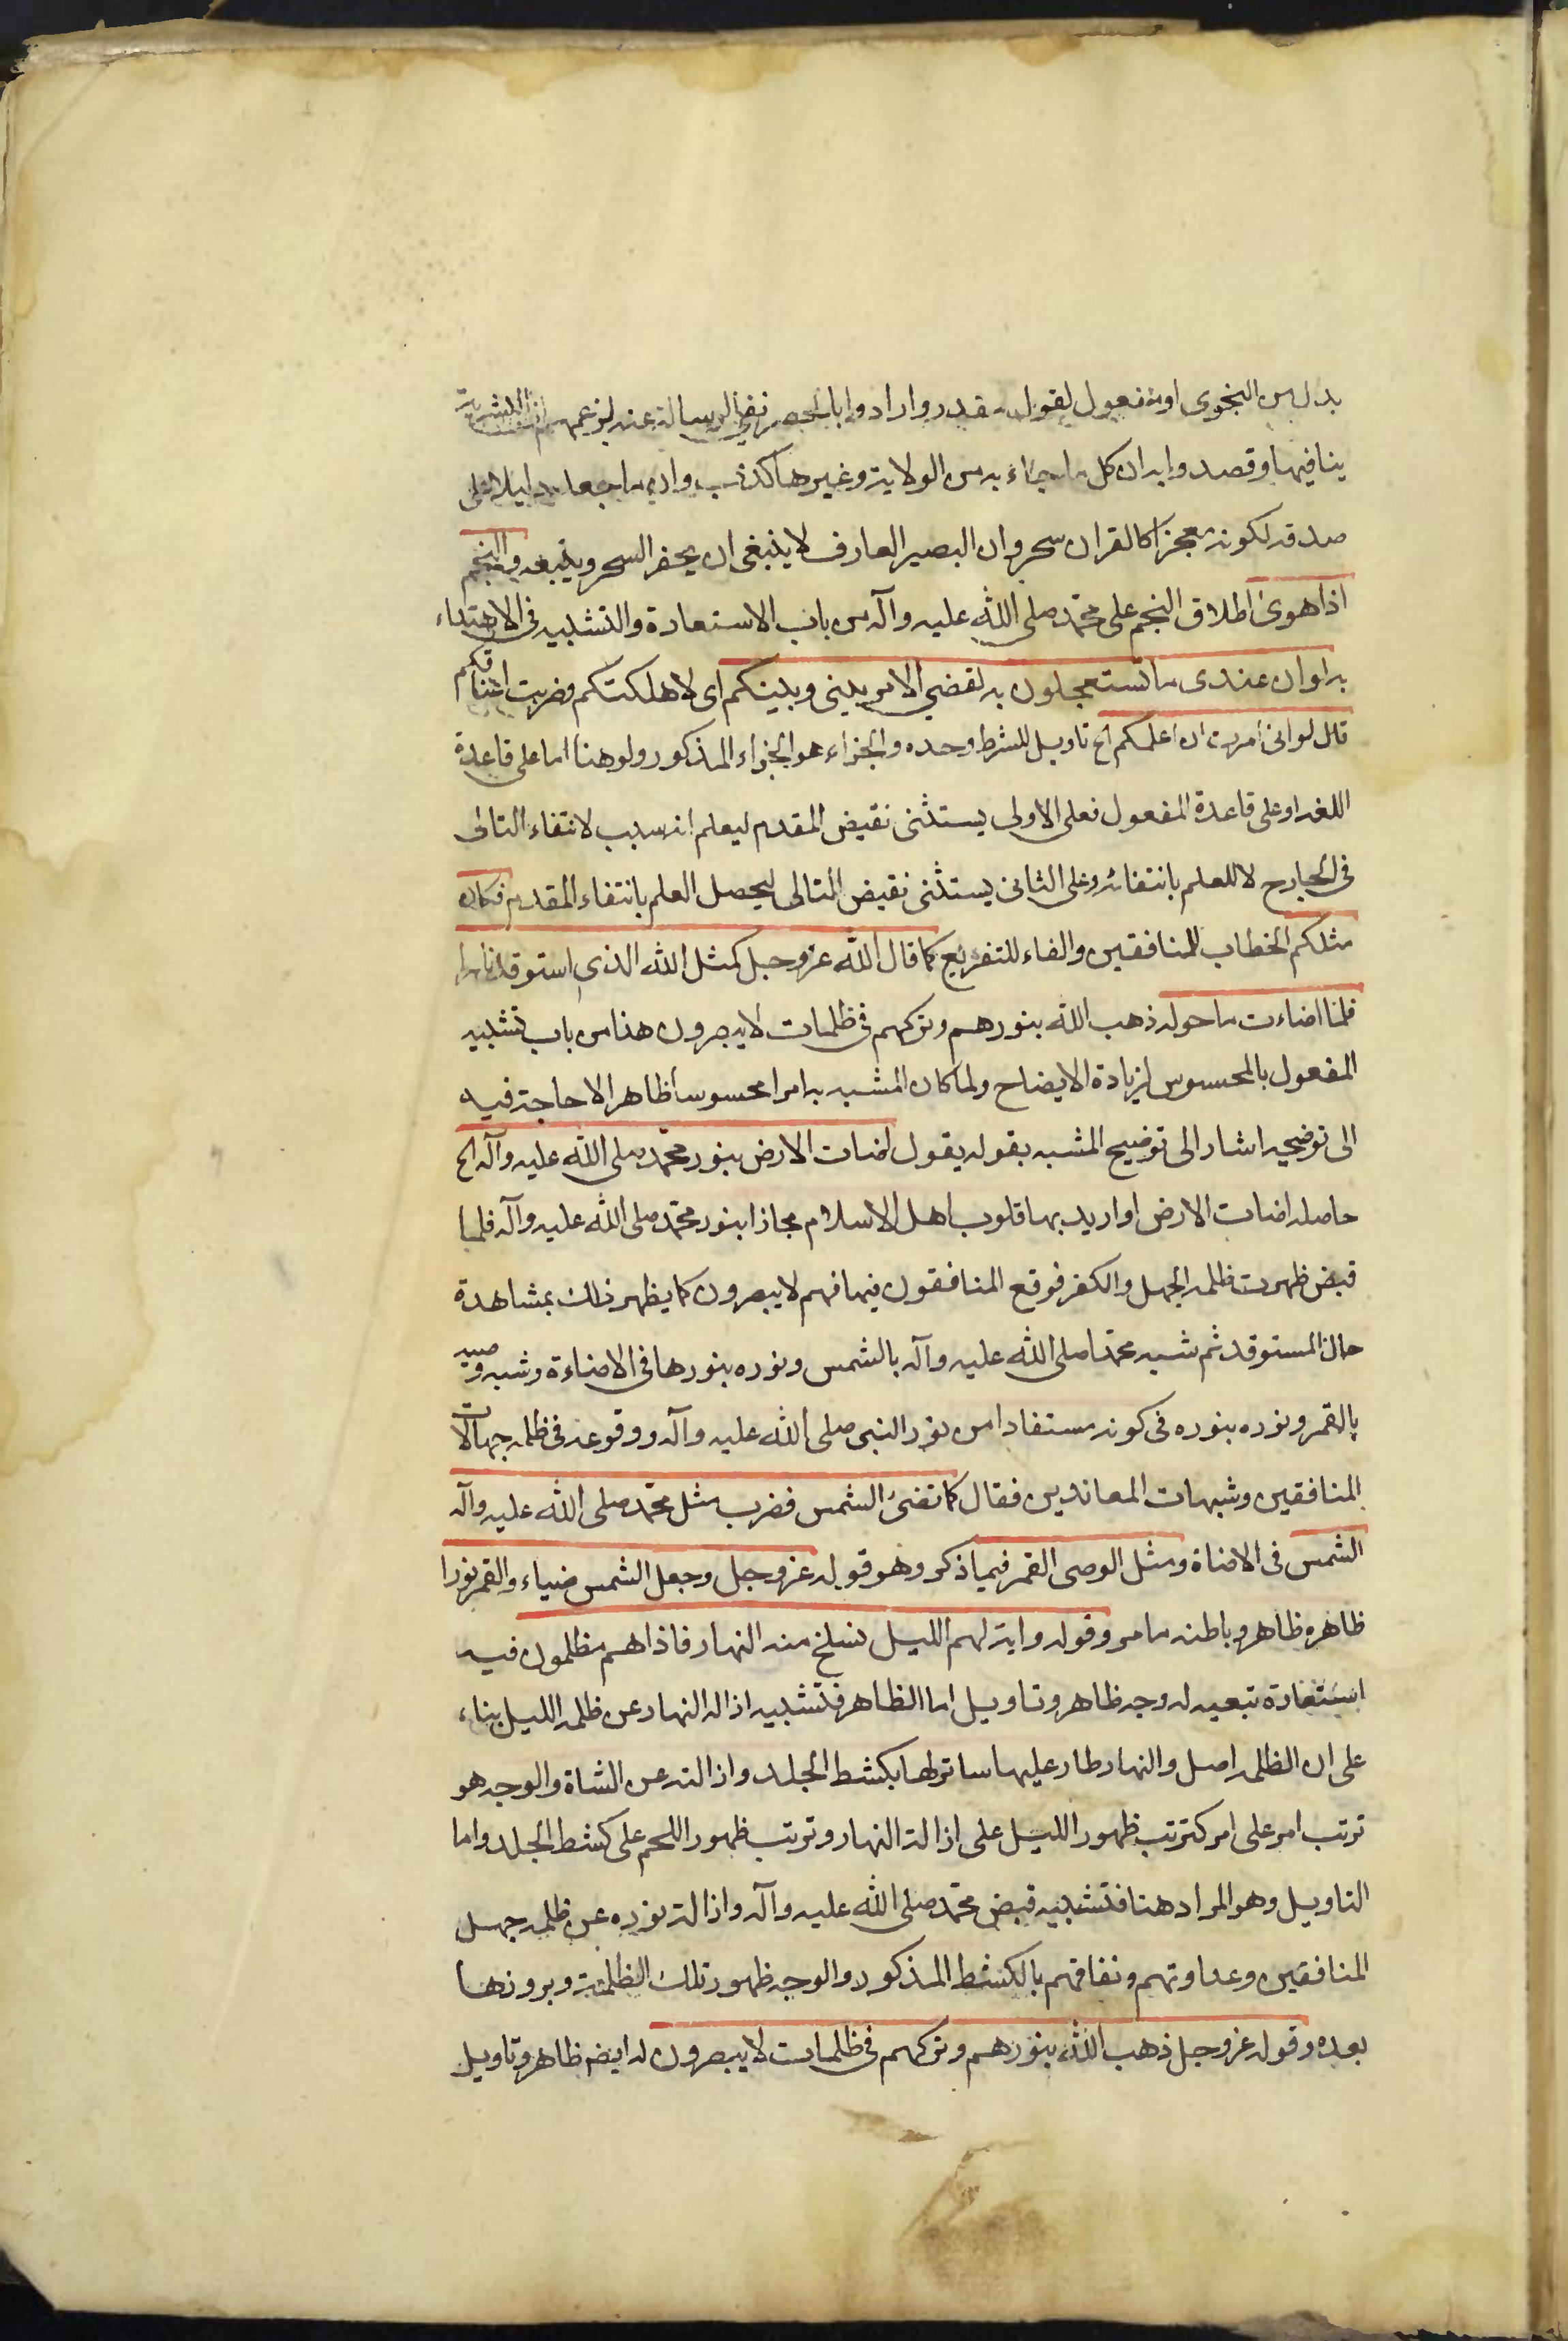 بدل من النجوى او مفعول لقول مقدر وارادوا بالحصر نفي الرسالة عنه لزعمهم ان البشرية
ينافيها وقصدوا به ان كل ما جاء به من الولاية وغيرها كذب وان ما جعله دليلا على
صدقه لكونه معجزا كالقران سحر وان البصير العارف لا ينبغى ان يحضر السحر ويتبعه والنجم
اذا هوى اطلاق النجم على محمد صلى الله عليه وآله من باب الاستعارة والتشبيه فى الاهتداء
به لو ان عندى ما تستعجلون به لقضي الامر بينى وبينكم اى لاهلكتكم وضربت اعناقكم
قال لو انى امرت ان اعلمكم الخ تاويل للشرط وحده والجزاء هو الجزاء المذكور ولو هنا اما على قاعدة
اللغة او على قاعدة المعقول فعلى الاولى يستثنى نقيض المقدم ليعلم انه سبب لانتفاء التالى
فى الخارج لا للعلم بانتفائه وعلى الثانى يستثنى نقيض التالى ليحصل العلم بانتفاء المقدم فكان
مثلكم الخطاب للمنافقين والفاء للتفريع كما قال الله عز وجل كمثل الله الذى استوقد نارا
فلما اضاءت ما حوله ذهب الله بنورهم وتركهم فى ظلمات لا يبصرون هذا من باب تشبيه
المعقول بالمحسوس لزيادة الايضاح ولما كان المشبه به امرا محسوسا ظاهرا لا حاجة فيه
الى توضيحه اشار الى توضيح المشبه بقوله يقول اضات الارض بنور محمد صلى الله عليه وآله الخ
حاصله اضات الارض او اريد بها قلوب اهل الاسلام مجازا بنور محمد صلى الله عليه وآله فلما
قبض ظهرت ظلمة الجهل والكفر فوقع المنافقون فيها فهم لا يبصرون كما يظهر ذلك بمشاهدة
حال المستوقد ثم شبه محمدا صلى الله عليه وآله بالشمس ونوره بنورها فى الاضاءة وشبه وصيه
بالقمر ونوره بنوره فى كونه مستفادا من نور النبى صلى الله عليه وآله ووقوعه فى ظلمة جهالات
المنافقين وشبهات المعاندين فقال كما تضئ الشمس فضرب مثل محمد صلى الله عليه وآله
الشمس فى الاضاة ومثل الوصى القمر فيما ذكر وهو قوله عز وجل وجعل الشمس ضياء والقمر نورا
ظاهره ظاهر وباطنه ما مر وقوله واية لهم الليل نسلخ منه النهار فاذا هم مظلمون فيه
استعارة تبعيه له وجه ظاهر وتاويل اما الظاهر فتشبيه ازالة النهار عن ظلمة الليل بناء
على ان الظلمة اصل والنهار طار عليها ساتر لها بكشط الجلد وازالته عن الشاة والوجه هو
ترتب امر على امر كترتب ظهور الليل على ازالة النهار وترتب ظهور اللحم على كشط الجلد واما
التاويل وهو المراد هنا فتشبيه قبض محمد صلى الله عليه وآله وازالة نوره عن ظلمة جهل
المنافقين وعداوتهم ونفاقهم بالكشط المذكور والوجه ظهور تلك الظلمة وبروزها
بعده وقوله عز وجل ذهب الله بنورهم وتركهم فى ظلمات لا يبصرون له ايضا ظاهر وتاويل